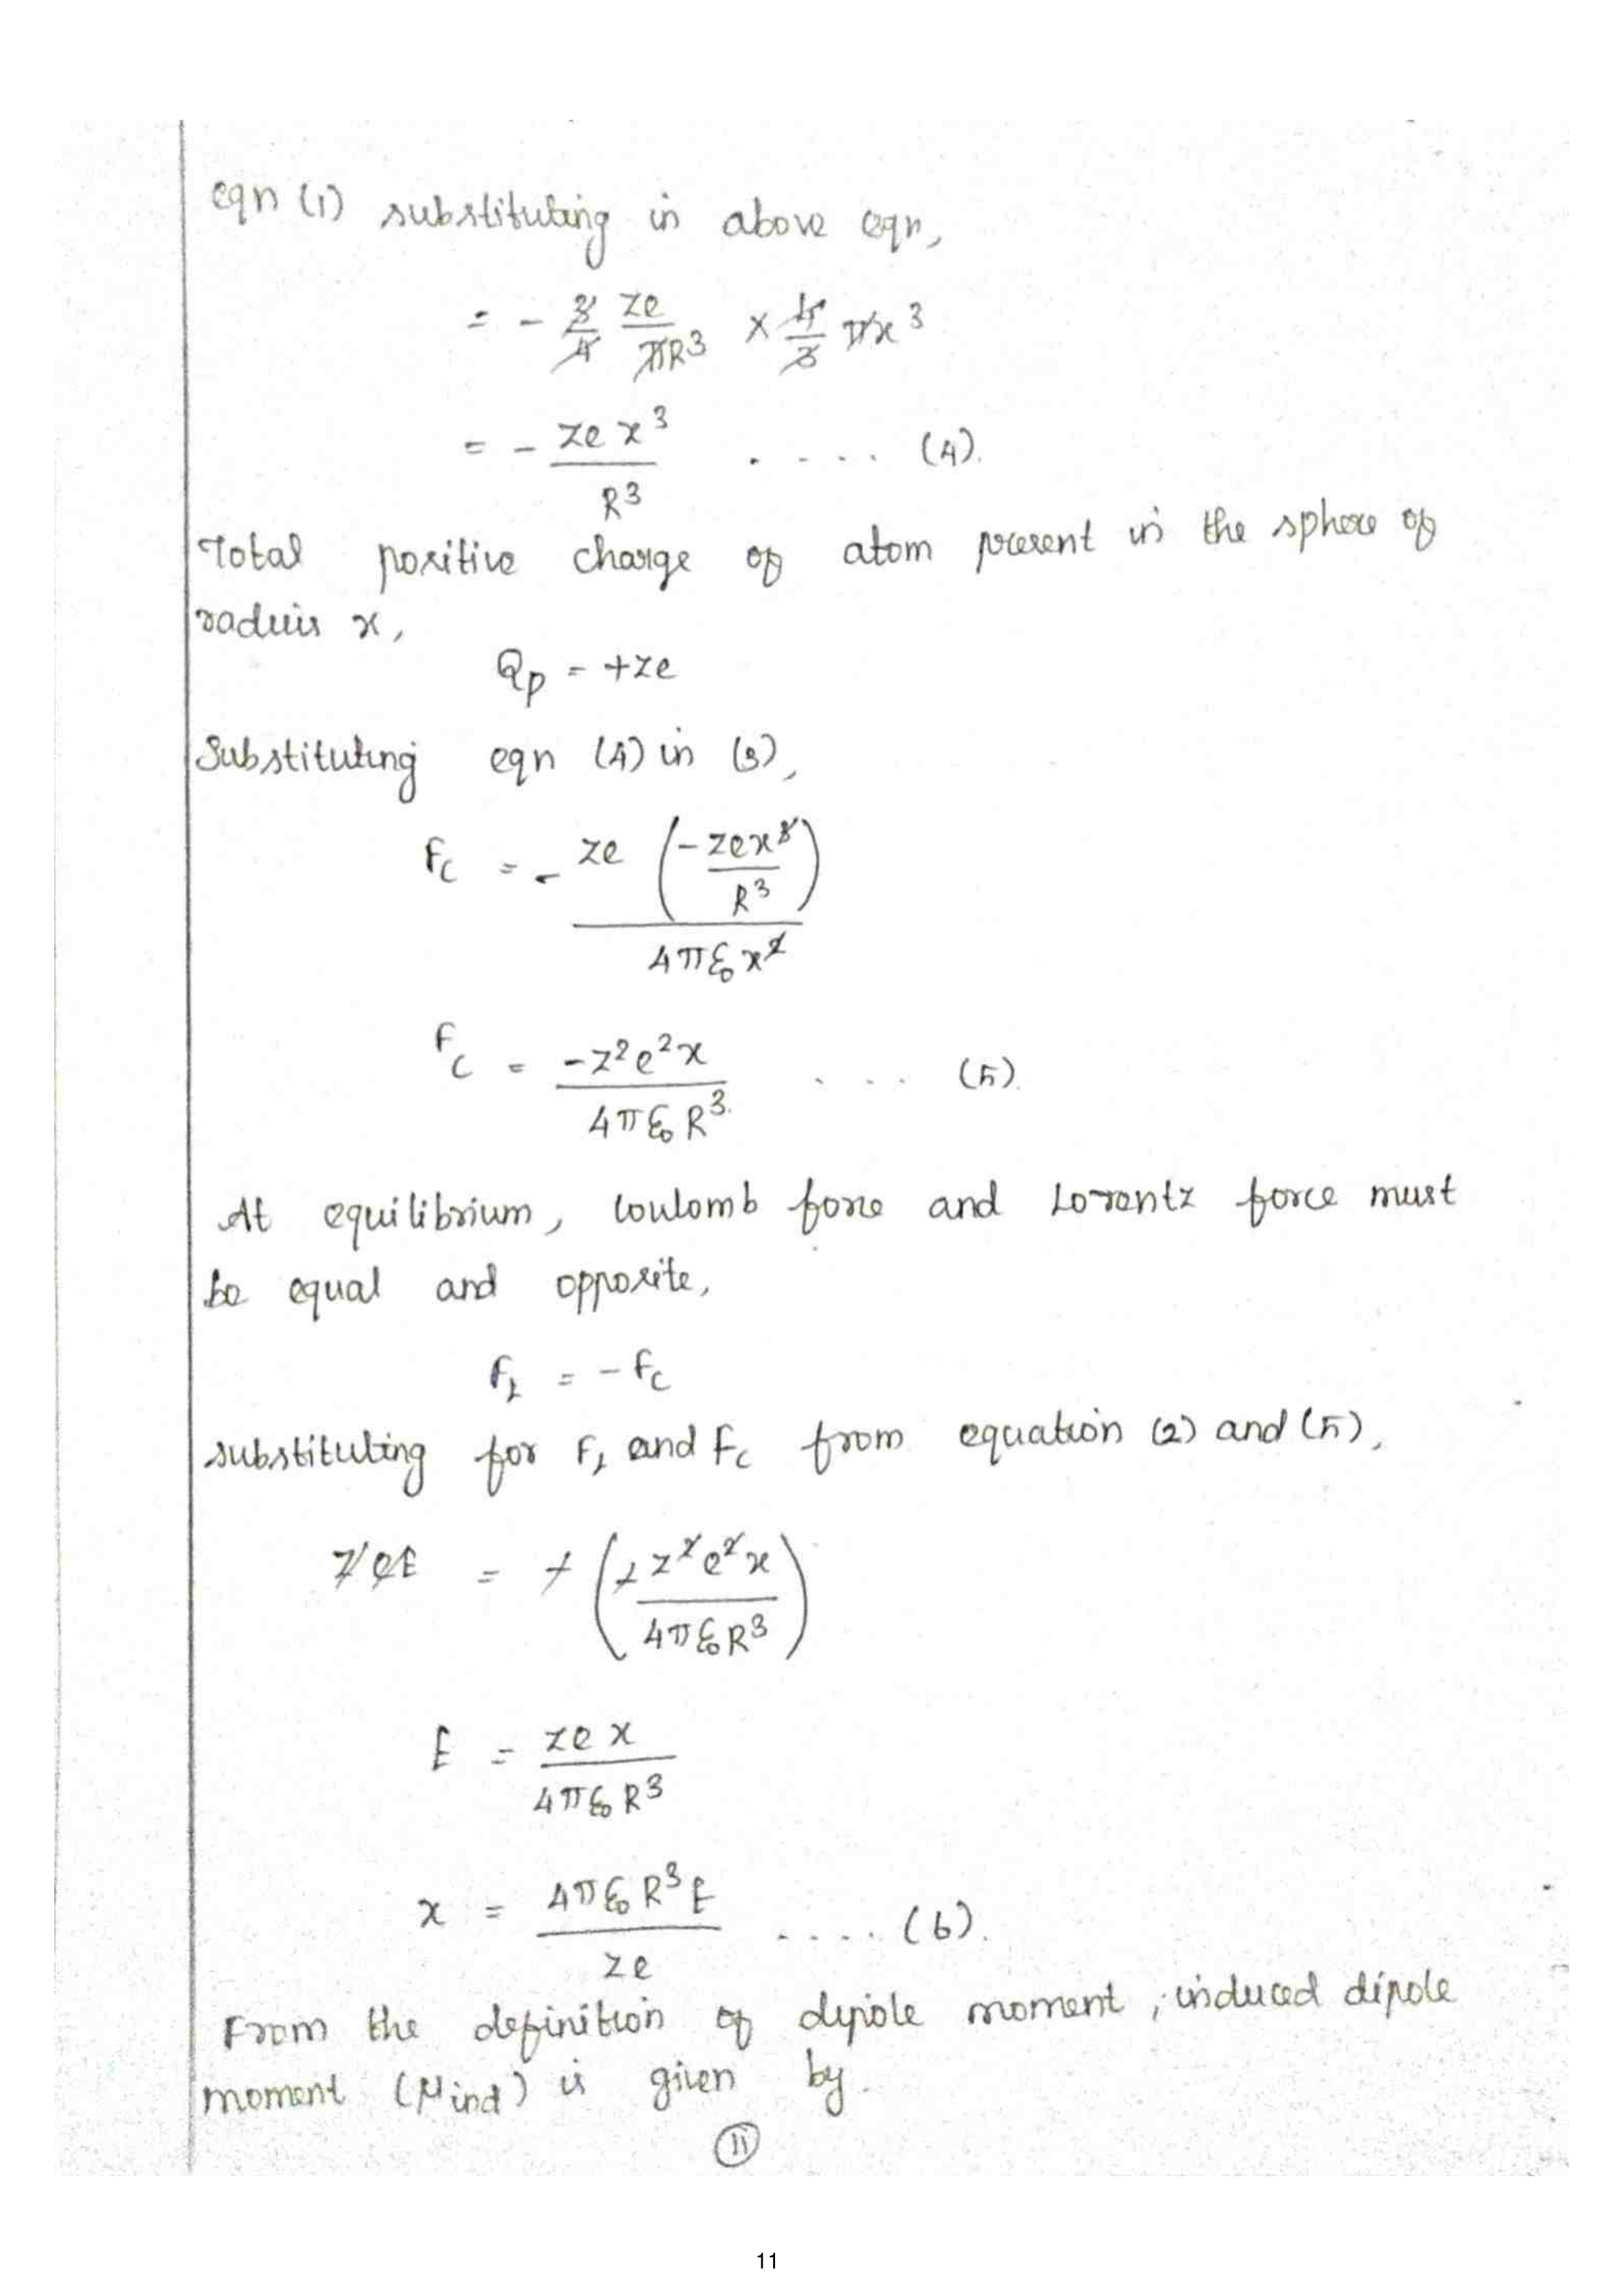 eqn (1) substituting in above eqn,
= - 3/4 Ze/πR³ × 4/3 πx³
= - Ze x³/R³ .... (4).
Total positive charge of atom present in the sphere of
raduis x,
Qp = +Ze
Substituting eqn (4) in (3),
Fc = - Ze (-Zex³/R³) / 4πε₀x²
Fc = -Z²e²x / 4πε₀R³ .... (5)
At equilibrium, Coulomb force and Lorentz force must
be equal and opposite,
FL = - Fc
substituting for FL and Fc from equation (2) and (5),
ZeE = + (+ Z²e²x / 4πε₀R³)
E = Zex / 4πε₀R³
x = 4πε₀R³E / Ze ..... (6).
From the definition of dipole moment, induced dipole
moment (μind) is given by.
11
11